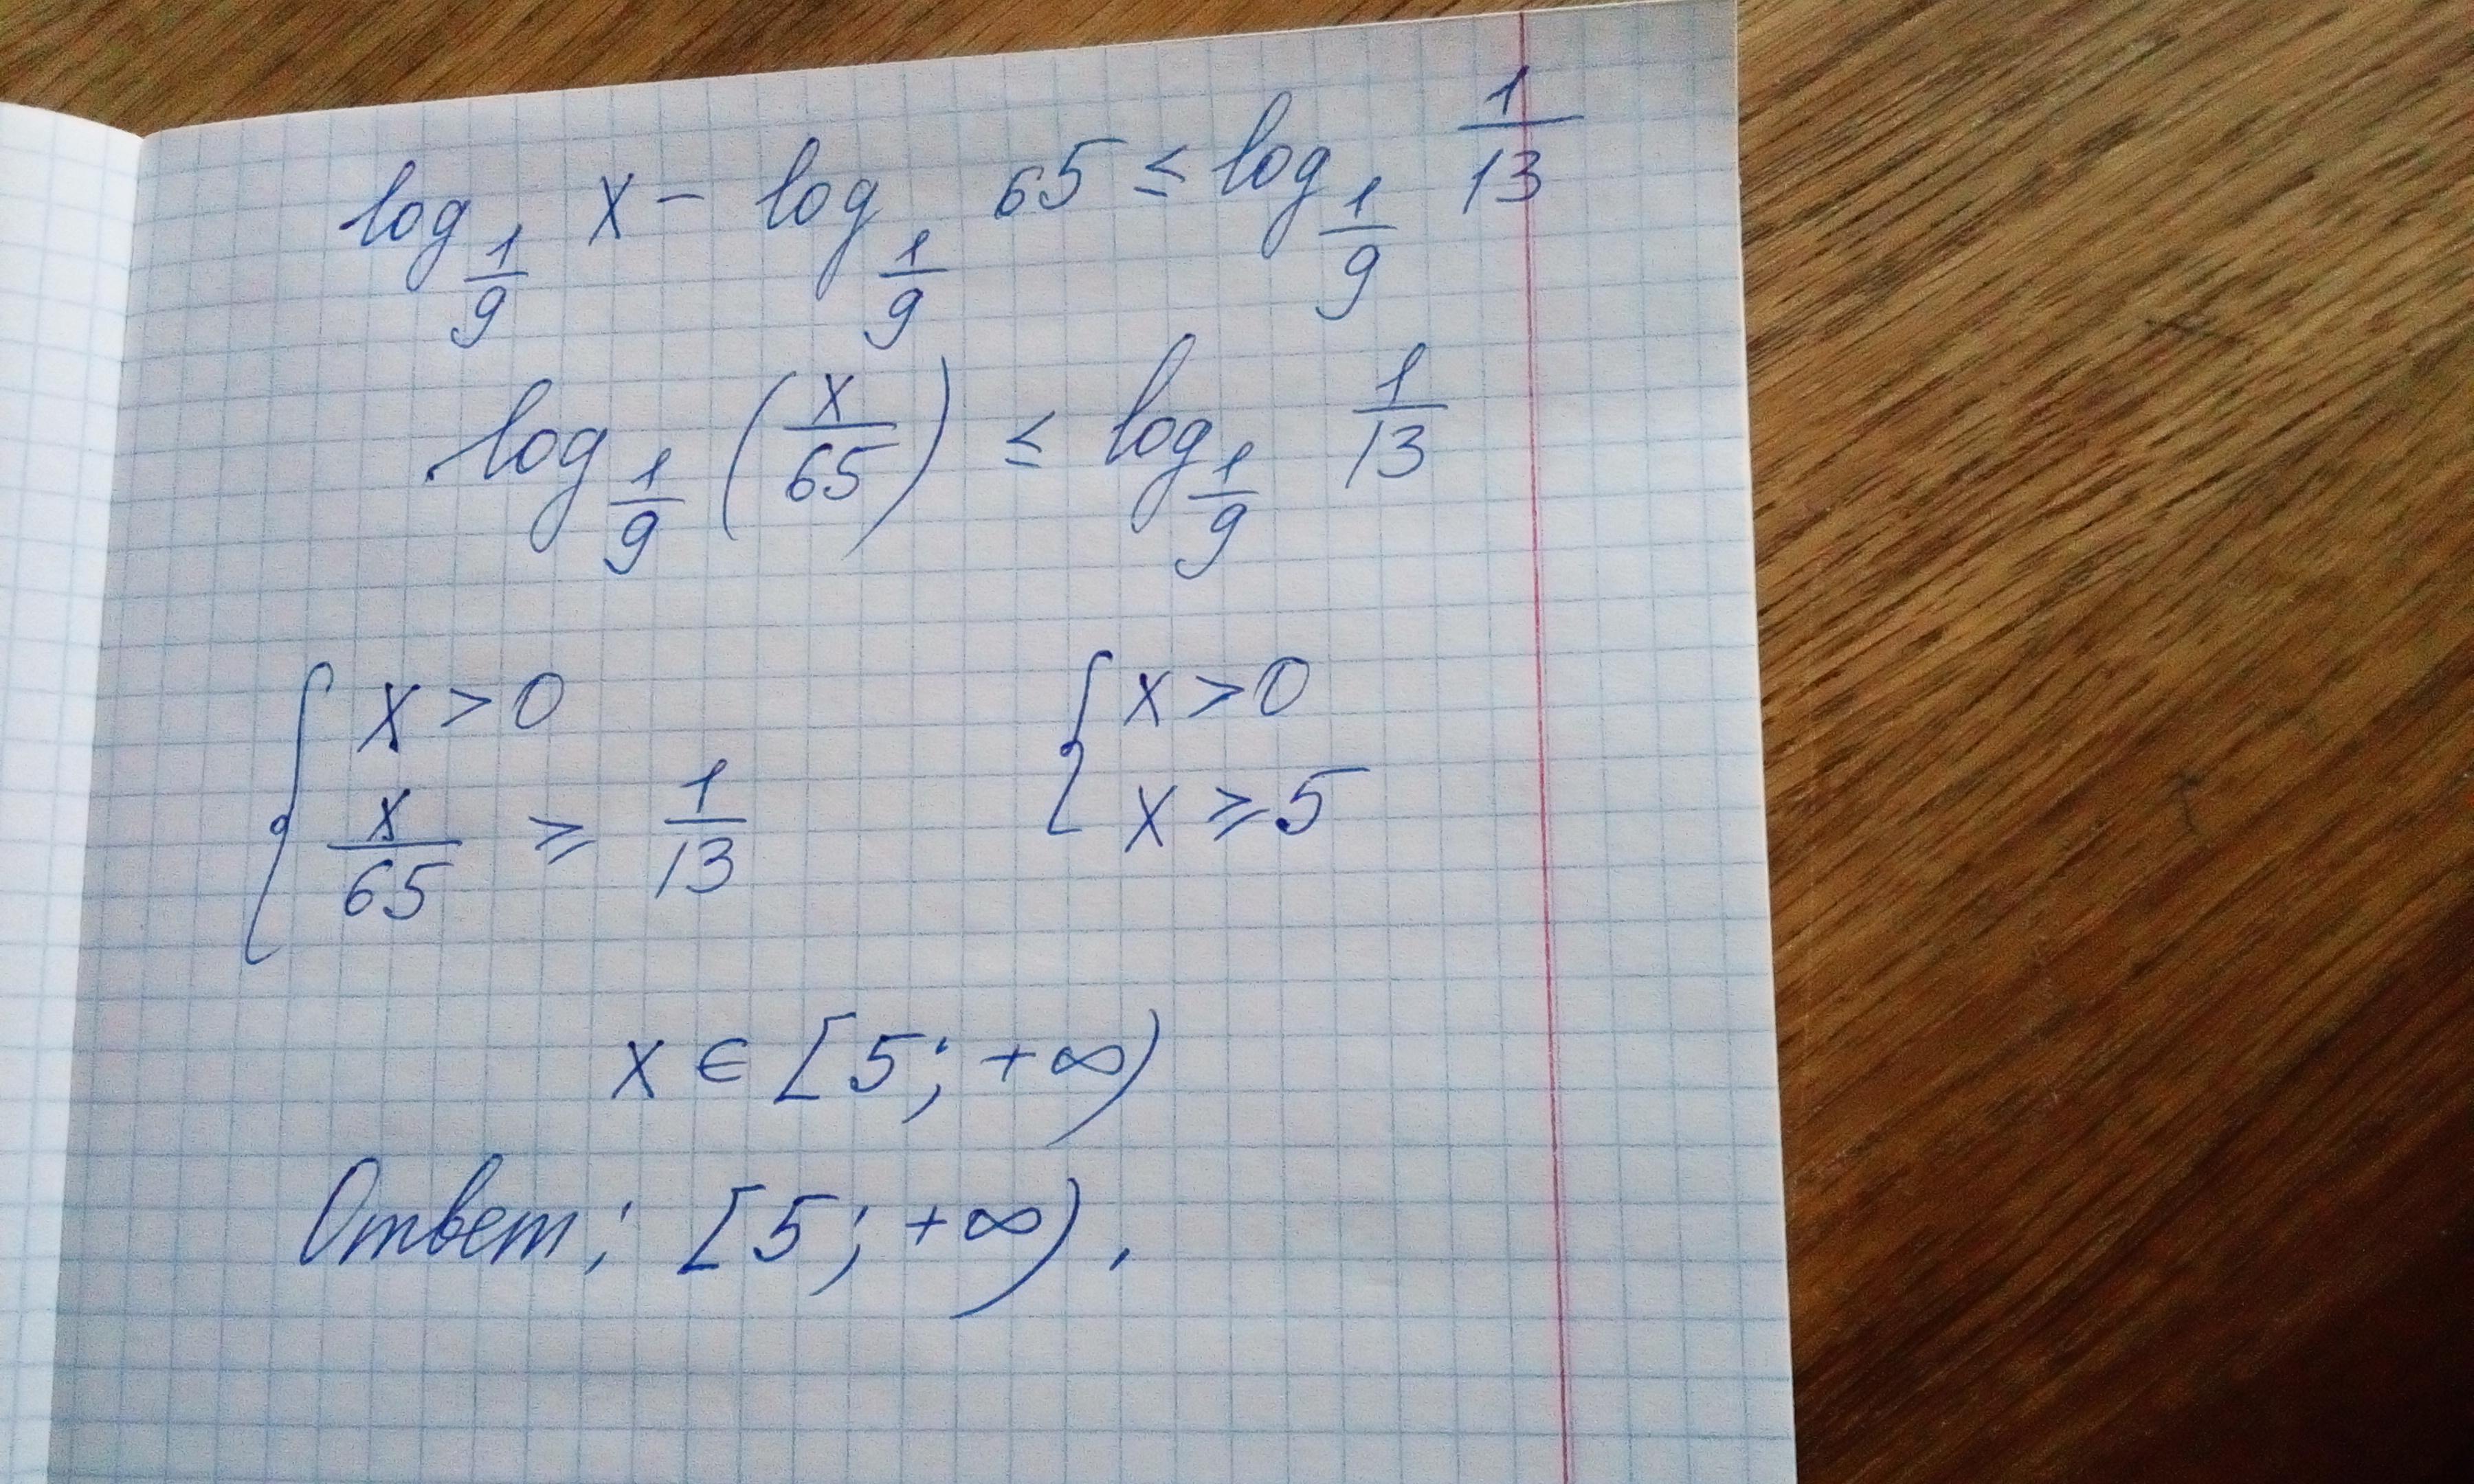 log_{1/9} x - log_{1/9} 65 ≤ log_{1/9} 1/13
log_{1/9} (x/65) ≤ log_{1/9} 1/13
{ x > 0 { x > 0
x/65 ≥ 1/13 x ≥ 5
x ∈ [5; +∞)
Ответ: [5; +∞).